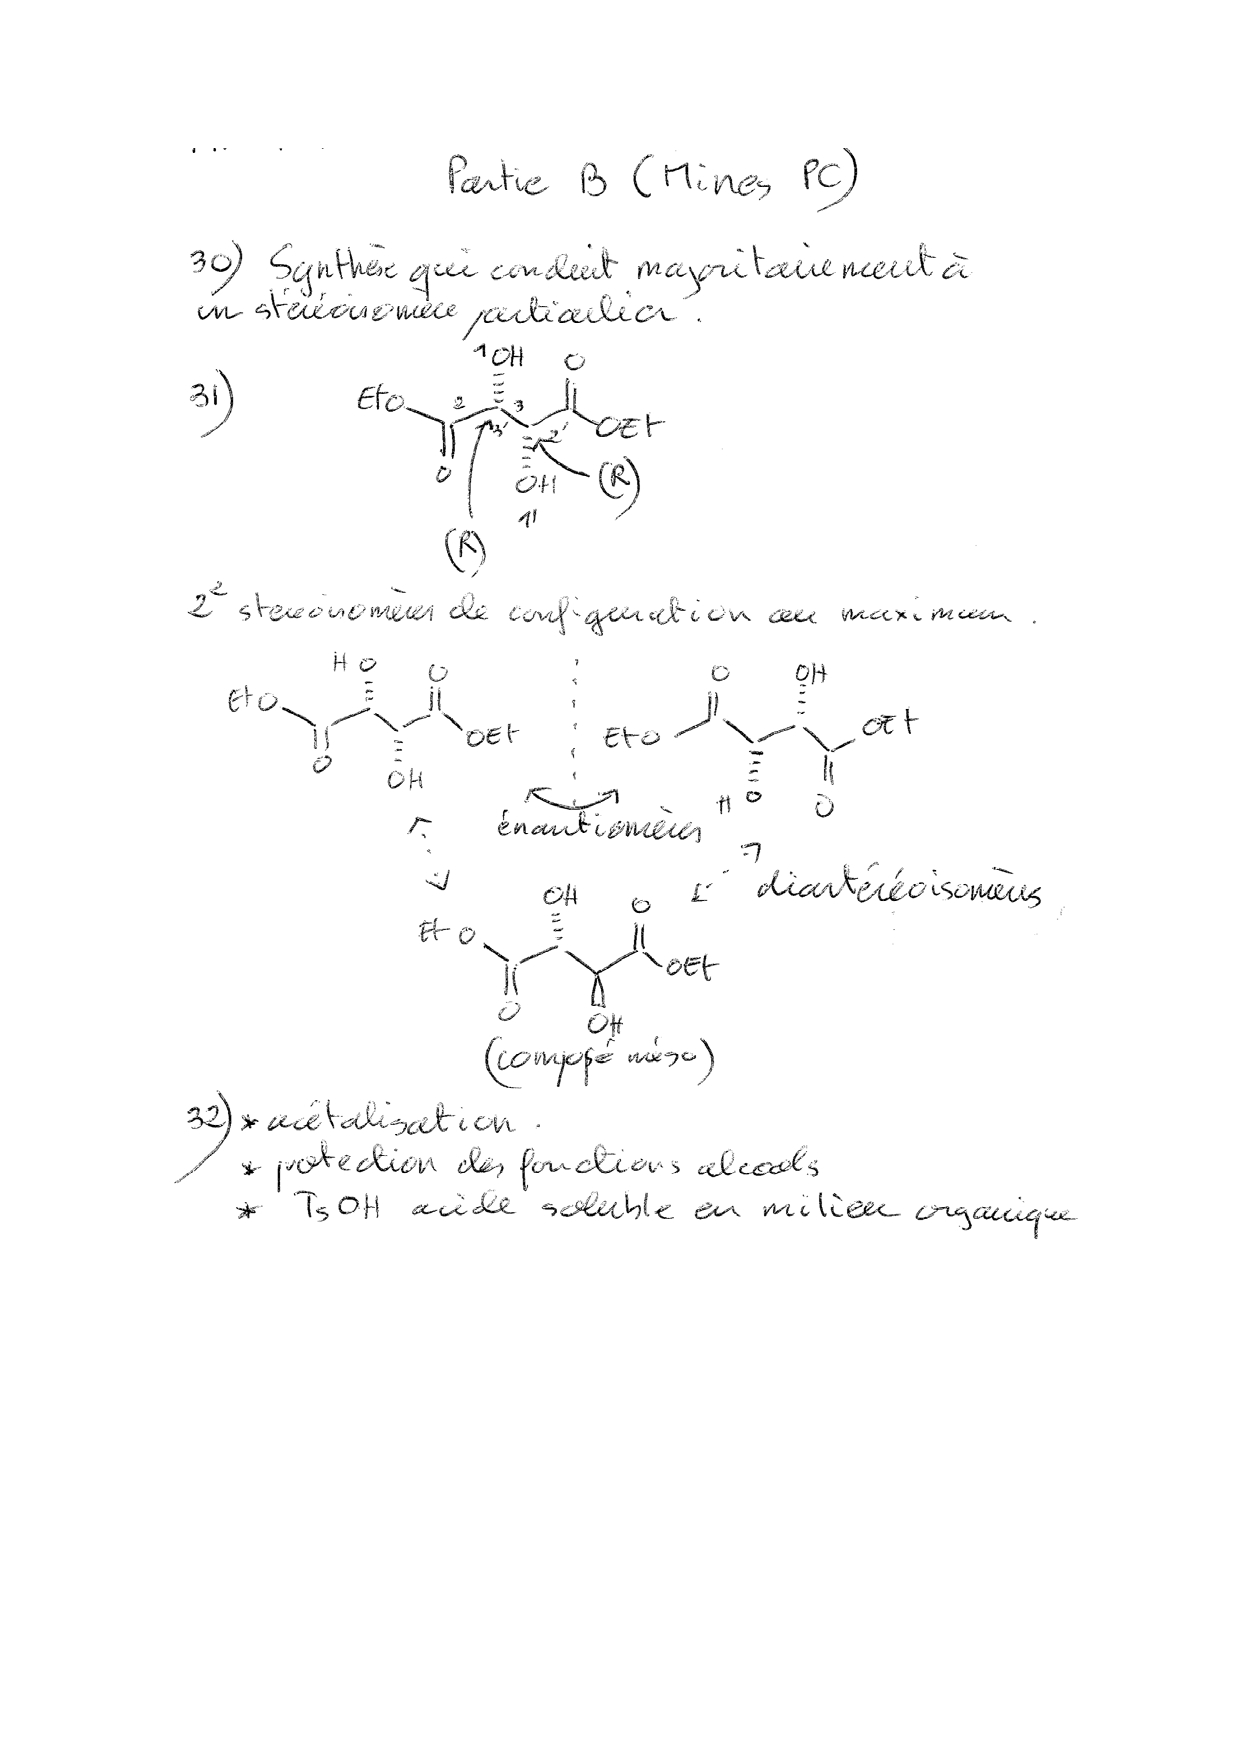 Partie B (Mines PC)
30) Synthèse qui conduit majoritairement à
un stéréoisomère particulier.
31)
1 OH O
EtO 2 3
3' 2' OEt
O OH (R)
1'
(R)
2² stéréoisomères de configuration au maximum.
HO O O OH
EtO OEt
OEt EtO
O OH HO O
énantiomères
diastéréoisomères
OH O
EtO
OEt
O OH
(composé méso)
32) * acétalisation.
* protection des fonctions alcools
* TsOH acide soluble en milieu organique